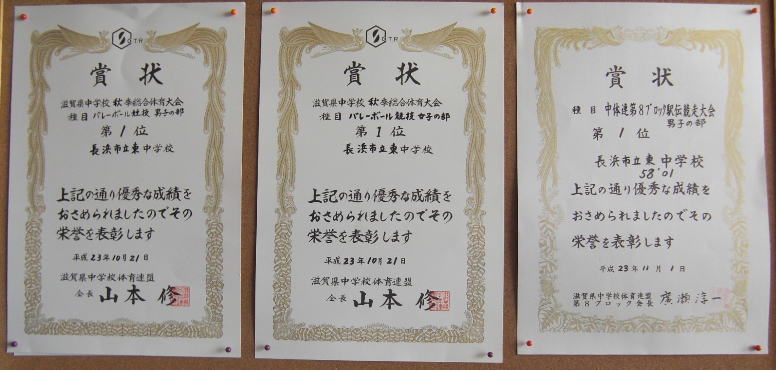 S T.R
賞状
滋賀県中学校 秋季総合体育大会
種目 バレーボール競技 男子の部
第1位
長浜市立東中学校
上記の通り優秀な成績を
おさめられましたのでその
栄誉を表彰します
平成23年10月21日
滋賀県中学校体育連盟
会長 山本 修
S T.R
賞状
滋賀県中学校 秋季総合体育大会
種目 バレーボール競技 女子の部
第1位
長浜市立東中学校
上記の通り優秀な成績を
おさめられましたのでその
栄誉を表彰します
平成23年10月21日
滋賀県中学校体育連盟
会長 山本 修
賞状
種目 中体連第8ブロック駅伝競走大会
男子の部
第1位
長浜市立東中学校
58'01
上記の通り優秀な成績を
おさめられましたのでその
栄誉を表彰します
平成23年11月1日
滋賀県中学校体育連盟
第8ブロック会長 廣瀬淳一